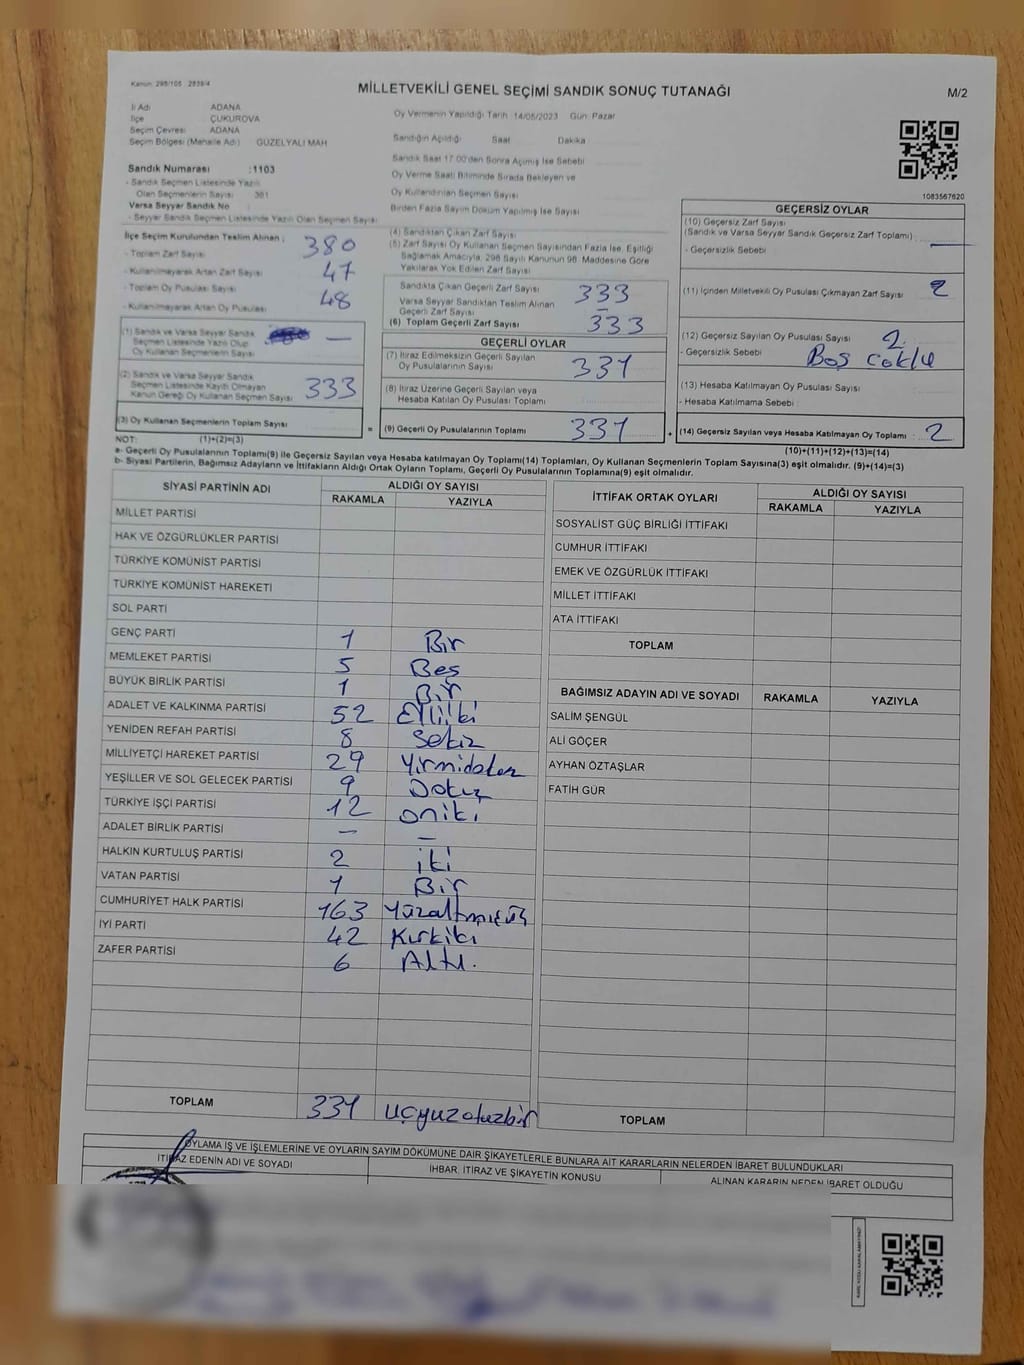 Kanun: 298/105 2839/4
MİLLETVEKİLİ GENEL SEÇİMİ SANDIK SONUÇ TUTANAĞI
M/2
İl Adı ADANA
İlçe ÇUKUROVA
Seçim Çevresi ADANA
Seçim Bölgesi (Mahalle Adı) GÜZELYALI MAH
Oy Vermenin Yapıldığı Tarih 14/05/2023 Gün: Pazar
Sandığın Açıldığı Saat Dakika
Sandık Saat 17:00'den Sonra Açılmış İse Sebebi
Oy Verme Saati Bitiminde Sırada Bekleyen ve
Oy Kullandırılan Seçmen Sayısı
Birden Fazla Sayım Döküm Yapılmış İse Sayısı
1083567620
Sandık Numarası :1103
- Sandık Seçmen Listesinde Yazılı
Olan Seçmenlerin Sayısı 381
Varsa Seyyar Sandık No
- Seyyar Sandık Seçmen Listesinde Yazılı Olan Seçmen Sayısı
İlçe Seçim Kurulundan Teslim Alınan;
- Toplam Zarf Sayısı 380
- Kullanılmayarak Artan Zarf Sayısı 47
- Toplam Oy Pusulası Sayısı
- Kullanılmayarak Artan Oy Pusulası 48
(1) Sandık ve Varsa Seyyar Sandık
Seçmen Listesinde Yazılı Olup
Oy Kullanan Seçmenlerin Sayısı —
(2) Sandık ve Varsa Seyyar Sandık
Seçmen Listesinde Kayıtlı Olmayan
Kanun Gereği Oy Kullanan Seçmen Sayısı 333
(3) Oy Kullanan Seçmenlerin Toplam Sayısı =
(4) Sandıktan Çıkan Zarf Sayısı
(5) Zarf Sayısı Oy Kullanan Seçmen Sayısından Fazla İse, Eşitliği
Sağlamak Amacıyla, 298 Sayılı Kanunun 98. Maddesine Göre
Yakılarak Yok Edilen Zarf Sayısı
Sandıkta Çıkan Geçerli Zarf Sayısı 333
Varsa Seyyar Sandıktan Teslim Alınan
Geçerli Zarf Sayısı —
(6) Toplam Geçerli Zarf Sayısı 333
GEÇERLİ OYLAR
(7) İtiraz Edilmeksizin Geçerli Sayılan
Oy Pusulalarının Sayısı 331
(8) İtiraz Üzerine Geçerli Sayılan veya
Hesaba Katılan Oy Pusulası Toplamı
(9) Geçerli Oy Pusulalarının Toplamı 331 +
GEÇERSİZ OYLAR
(10) Geçersiz Zarf Sayısı
(Sandık ve Varsa Seyyar Sandık Geçersiz Zarf Toplamı) —
- Geçersizlik Sebebi
(11) İçinden Milletvekili Oy Pusulası Çıkmayan Zarf Sayısı 2
(12) Geçersiz Sayılan Oy Pusulası Sayısı 2
- Geçersizlik Sebebi Boş
(13) Hesaba Katılmayan Oy Pusulası Sayısı
- Hesaba Katılmama Sebebi
(14) Geçersiz Sayılan veya Hesaba Katılmayan Oy Toplamı : 2
NOT: (1)+(2)=(3)
(10)+(11)+(12)+(13)=(14)
a- Geçerli Oy Pusulalarının Toplamı(9) ile Geçersiz Sayılan veya Hesaba katılmayan Oy Toplamı(14) Toplamları, Oy Kullanan Seçmenlerin Toplam Sayısına(3) eşit olmalıdır. (9)+(14)=(3)
b- Siyasi Partilerin, Bağımsız Adayların ve İttifakların Aldığı Ortak Oyların Toplamı, Geçerli Oy Pusulalarının Toplamına(9) eşit olmalıdır.
SİYASİ PARTİNİN ADI
ALDIĞI OY SAYISI
RAKAMLA YAZIYLA
MİLLET PARTİSİ
HAK VE ÖZGÜRLÜKLER PARTİSİ
TÜRKİYE KOMÜNİST PARTİSİ
TÜRKİYE KOMÜNİST HAREKETİ
SOL PARTİ
GENÇ PARTİ 1 Bir
MEMLEKET PARTİSİ 5 Beş
BÜYÜK BİRLİK PARTİSİ 1 Bir
ADALET VE KALKINMA PARTİSİ 52 Elliiki
YENİDEN REFAH PARTİSİ 8 Sekiz
MİLLİYETÇİ HAREKET PARTİSİ 29 Yirmidokuz
YEŞİLLER VE SOL GELECEK PARTİSİ 9 Dokuz
TÜRKİYE İŞÇİ PARTİSİ 12 oniki
ADALET BİRLİK PARTİSİ — —
HALKIN KURTULUŞ PARTİSİ 2 iki
VATAN PARTİSİ 1 Bir
CUMHURİYET HALK PARTİSİ 163 Yüzaltmışüç
İYİ PARTİ 42 Kırkiki
ZAFER PARTİSİ 6 Altı.
TOPLAM 331 üçyüzotuzbir
İTTİFAK ORTAK OYLARI
ALDIĞI OY SAYISI
RAKAMLA YAZIYLA
SOSYALİST GÜÇ BİRLİĞİ İTTİFAKI
CUMHUR İTTİFAKI
EMEK VE ÖZGÜRLÜK İTTİFAKI
MİLLET İTTİFAKI
ATA İTTİFAKI
TOPLAM
BAĞIMSIZ ADAYIN ADI VE SOYADI RAKAMLA YAZIYLA
SALİM ŞENGÜL
ALİ GÖÇER
AYHAN ÖZTAŞLAR
FATİH GÜR
TOPLAM
OYLAMA İŞ VE İŞLEMLERİNE VE OYLARIN SAYIM DÖKÜMÜNE DAİR ŞİKAYETLERLE BUNLARA AİT KARARLARIN NELERDEN İBARET BULUNDUKLARI
İTİRAZ EDENİN ADI VE SOYADI
İHBAR, İTİRAZ VE ŞİKAYETİN KONUSU
ALINAN KARARIN NEDEN İBARET OLDUĞU